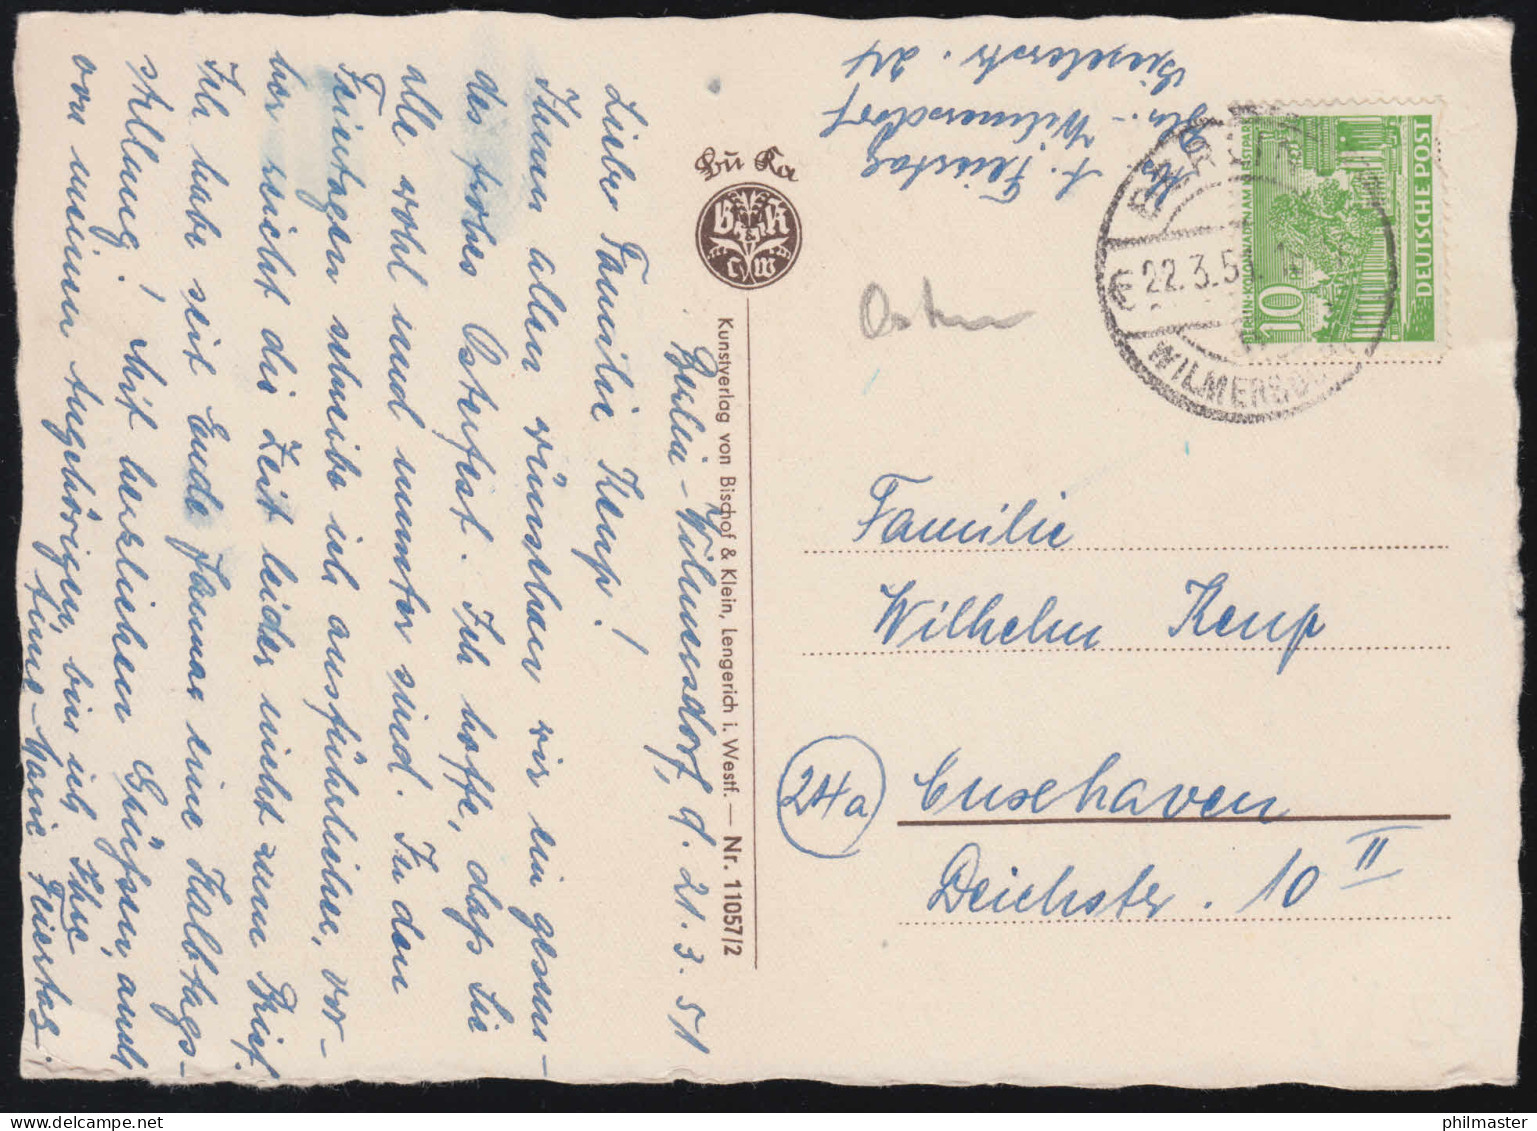 Berlin-Wilmersdorf, d. 21. 3. 51
Liebe Familie Kemp!
Ihnen allen wünschen wir ein gesun-
des frohes Osterfest. Ich hoffe, daß Sie
alle wohl und munter sind. In den
Feiertagen schreibe ich ausführlicher, vor-
her reicht die Zeit leider nicht zum Brief.
Ich habe seit Ende Januar eine Halbtags-
stellung! Mit herzlichen Grüßen, auch
von meinen Angehörigen, bin ich Ihre
Feiertag.
Bu Ka
B & K
C W
Kunstverlag von Bischof & Klein, Lengerich i. Westf. — Nr. 11057/2
Feiertag
Bln.-Wilmersdorf
24
Ostern
BERLIN
22.3.51
WILMERSDORF
10
DEUTSCHE POST
Familie
Wilhelm Kemp
24a
Cuxhaven
Deichstr. 10 II
philmaster